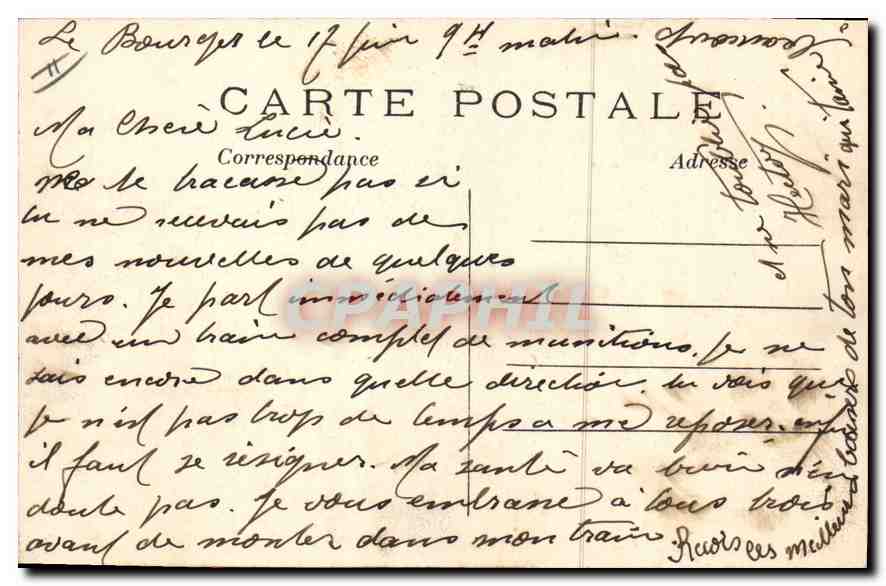 Le Bourget le 17 juin 9H matin.
CARTE POSTALE
Ma Chere Lucie.
Correspondance
Adresse
ne te tracasse pas si
tu ne recevais pas de
mes nouvelles de quelques
jours. Je part immédiatement
avec un train complet de munitions. Je ne
sais encore dans quelle direction. tu vois que
je n'est pas trop de temps a me reposer. enfin
il faut se résigner. Ma santé va bien n'en
doute pas. Je vous embrasse à tous trois
avant de monter dans mon train.
Recois les meilleurs baisers de ton mari qui t'aime
et ne t'oublie pas
CPAPHIL